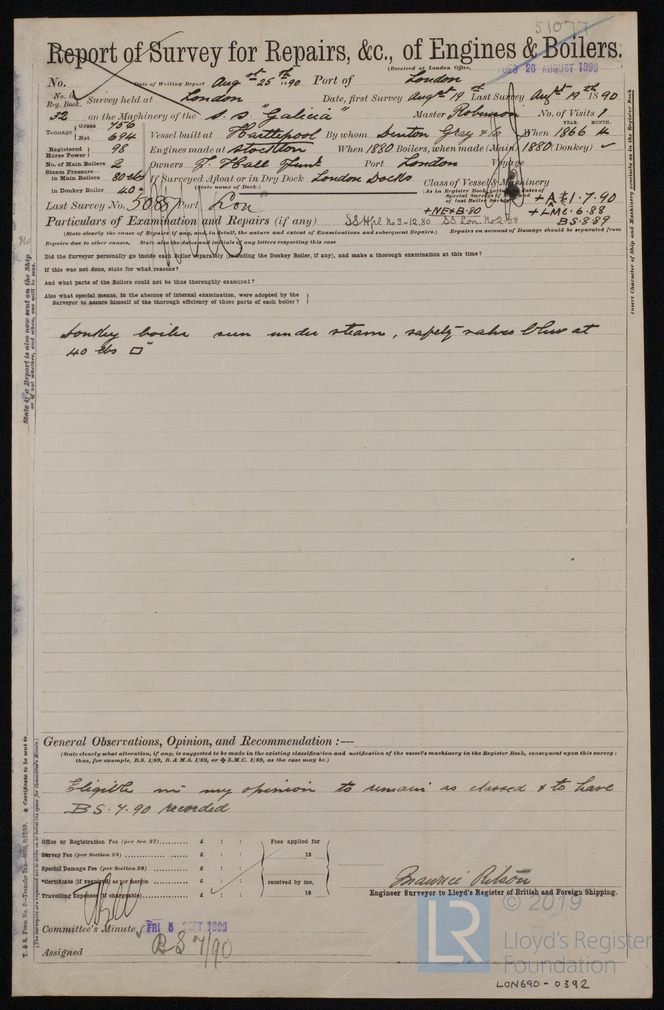 51077
Report of Survey for Repairs, &c., of Engines & Boilers.
(Received at London Office, 26 AUGUST 1890
No. Date of Writing Report Augst 25th 90 Port of London
No. in Reg. Book. Survey held at London Date, first Survey Augst 19 Last Survey Augst 19th 1890
32 on the Machinery of the S.S. "Galicia" Master Robinson No. of Visits 1
Tonnage Gross 756 Net 694 Vessel built at Hartlepool By whom Denton Gray & Co When YEAR. 1866 MONTH. 4
Registered Horse Power 98 Engines made at Stockton When 1880 Boilers, when made (Main) 1880 Donkey) ✓
No. of Main Boilers 2 Owners J. Hall Junr Port London Voyage
Steam Pressure in Main Boilers 80 lbs If Surveyed Afloat or in Dry Dock London Docks Class of Vessel & Machinery
in Donkey Boiler 40 " (State name of Dock.)
Last Survey No. 5085 Port Lon
+A1 1.7.90
+NE+B.80 +LMC.6.88
BS.8.89
Particulars of Examination and Repairs (if any) SS Hpl No 3-12,80 SS Lon No 2
(State clearly the cause of Repairs if any, and in detail, the nature and extent of Examinations and subsequent Repairs.) Repairs on account of Damage should be separated from
Repairs due to other causes. State also the date and initials of any letters respecting this case
Did the Surveyor personally go inside each Boiler separately (including the Donkey Boiler, if any), and make a thorough examination at this time?
If this was not done, state for what reasons?
And what parts of the Boilers could not be thus thoroughly examined?
Also what special means, in the absence of internal examination, were adopted by the
Surveyor to assure himself of the thorough efficiency of those parts of each boiler?
Donkey boiler seen under steam, safety valves blew at
40 lbs □"
General Observations, Opinion, and Recommendation :—
(State clearly what alteration, if any, is suggested to be made in the existing classification and notification of the vessel's machinery in the Register Book, consequent upon this survey:
thus, for example, B.S. 1/89, B. & M.S. 1/89, or ✠ L.M.C. 1/89, as the case may be.)
Eligible in my opinion to remain as classed & to have
BS. 7.90 recorded
Office or Registration Fee (per Sec. 27) £ : : Fees applied for
Survey Fee (per Section 28) £ : : 18
Special Damage Fee (per Section 28) £ : :
*Certificate (if required) as per margin £ : : received by me,
Travelling Expenses (if chargeable) £ : : 18
Maurice Ritson
Engineer Surveyor to Lloyd's Register of British and Foreign Shipping.
Committee's Minute FRI 5 SEPT 1890
BS 7/90
Assigned
LR © 2019
Lloyd's Register
Foundation
LON690-0392